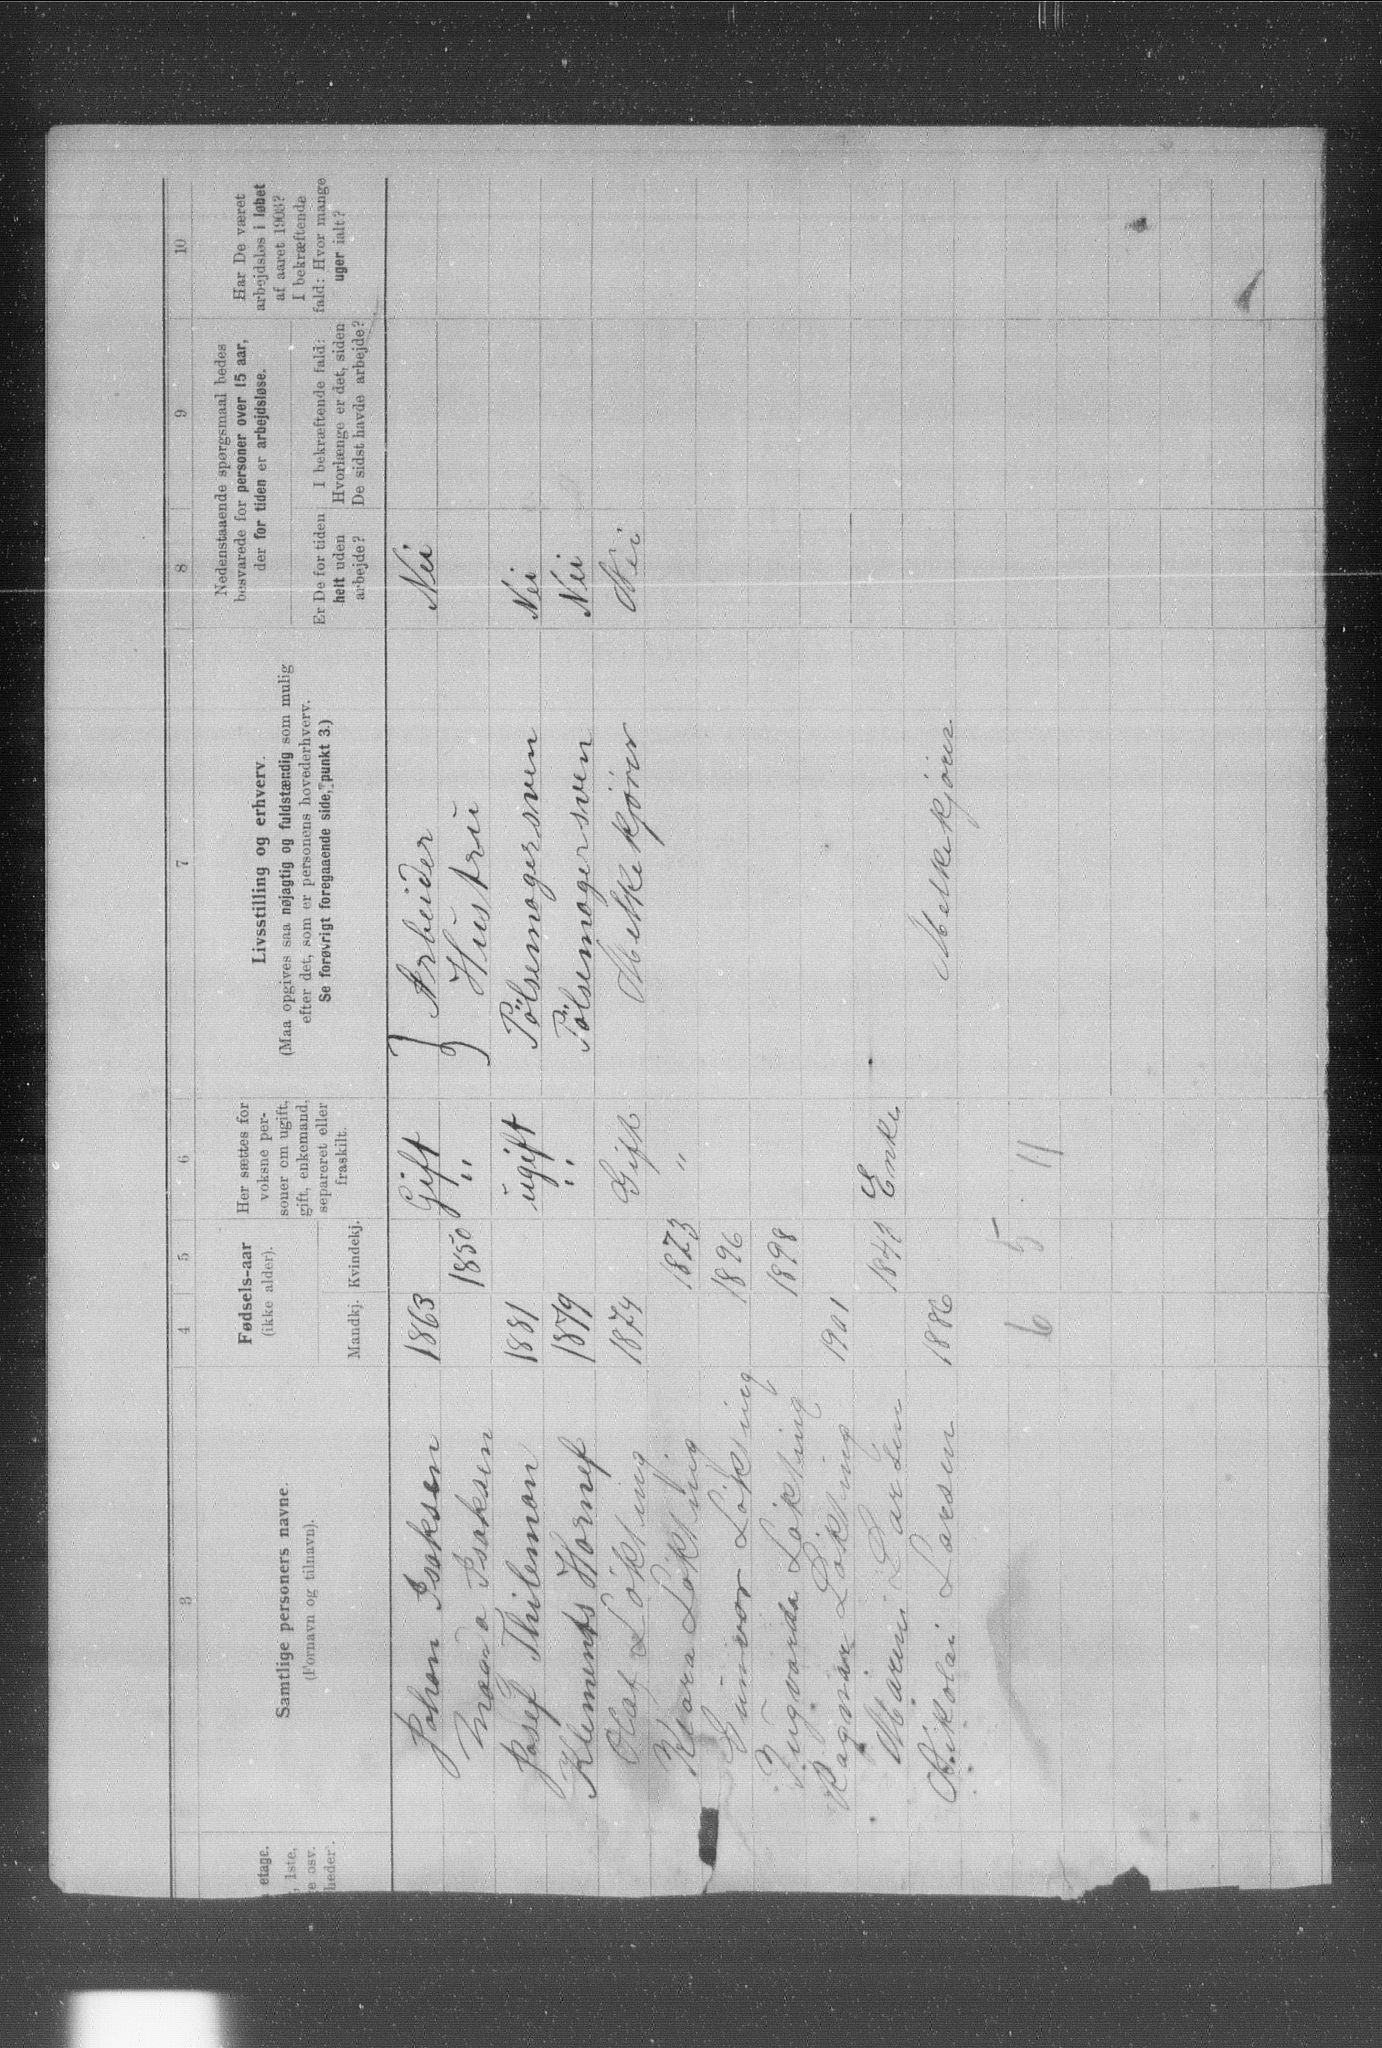 etage.
, 1ste,
e osv.
heder.
3
Samtlige personers navne.
(Fornavn og tilnavn).
4
5
Fødsels-aar
(ikke alder).
Mandkj.
Kvindekj.
6
Her sættes for
voksne per-
soner om ugift,
gift, enkemand,
separeret eller
fraskilt.
7
Livsstilling og erhverv.
(Maa opgives saa nøjagtig og fuldstændig som mulig
efter det, som er personens hovederhverv.
Se forøvrigt foregaaende side, punkt 3.)
8
9
Nedenstaaende spørgsmaal bedes
besvarede for personer over 15 aar,
der for tiden er arbejdsløse.
Er De for tiden
helt uden
arbejde?
I bekræftende fald:
Hvorlænge er det, siden
De sidst havde arbejde?
10
Har De været
arbejdsløs i løbet
af aaret 1903?
I bekræftende
fald: Hvor mange
uger ialt?
Johan Isaksen 1863 Gift } Arbeider Nei
Isaksen 1850 " Hustru
Josef Thileman 1881 ugift Pölsemagersven Nei
Klements Hornef 1879 " Pölsemagersven Nei
Olaf Lökting 1874 Gift Melkekjörer Nei
Klara Lökting 1873 "
Gunvor Lökting 1896
Lökting 1898
Ragnar Lökting 1901
Marin Larsen Enke
Nikolai Larsen 1886 Melkekjörer
6 5 11